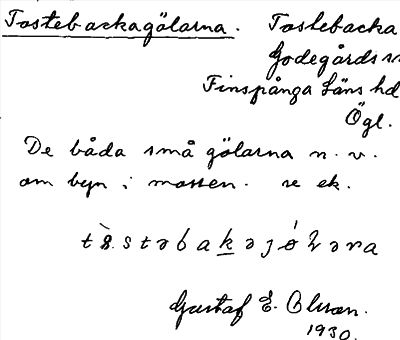 Tostebackagölarna. Tostebacka
Godegårds sn
Finspånga Läns hd
Ögl.
De båda små gölarna n. v.
om byn i mossen. se ek.
Gustaf E. Olsson.
1930.